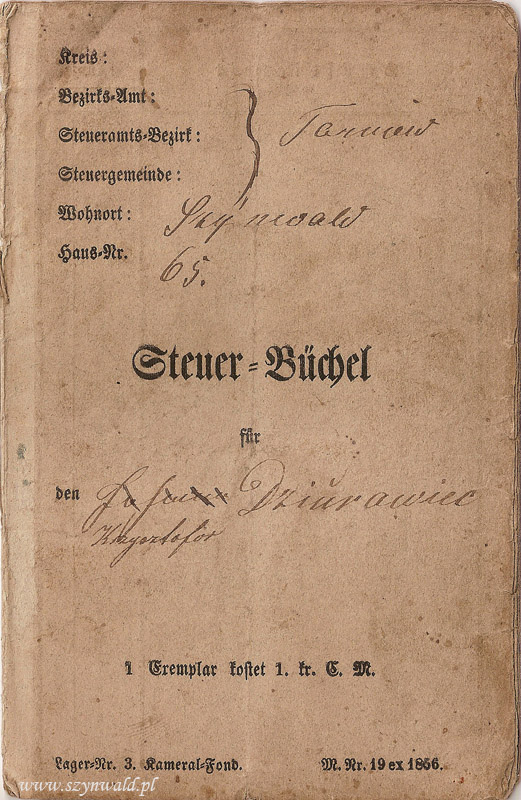 Kreis:
Bezirks-Amt:
Steueramts-Bezirk: } Tarnów
Steuergemeinde:
Wohnort: Szÿnwald
Haus-Nr. 65.
Steuer-Büchel
für
den Johann Dziurawiec
Krzysztofor
1 Exemplar kostet 1. kr. C. M.
Lager-Nr. 3. Kameral-Fond. M. Nr. 19 ex 1856.
www.szynwald.pl